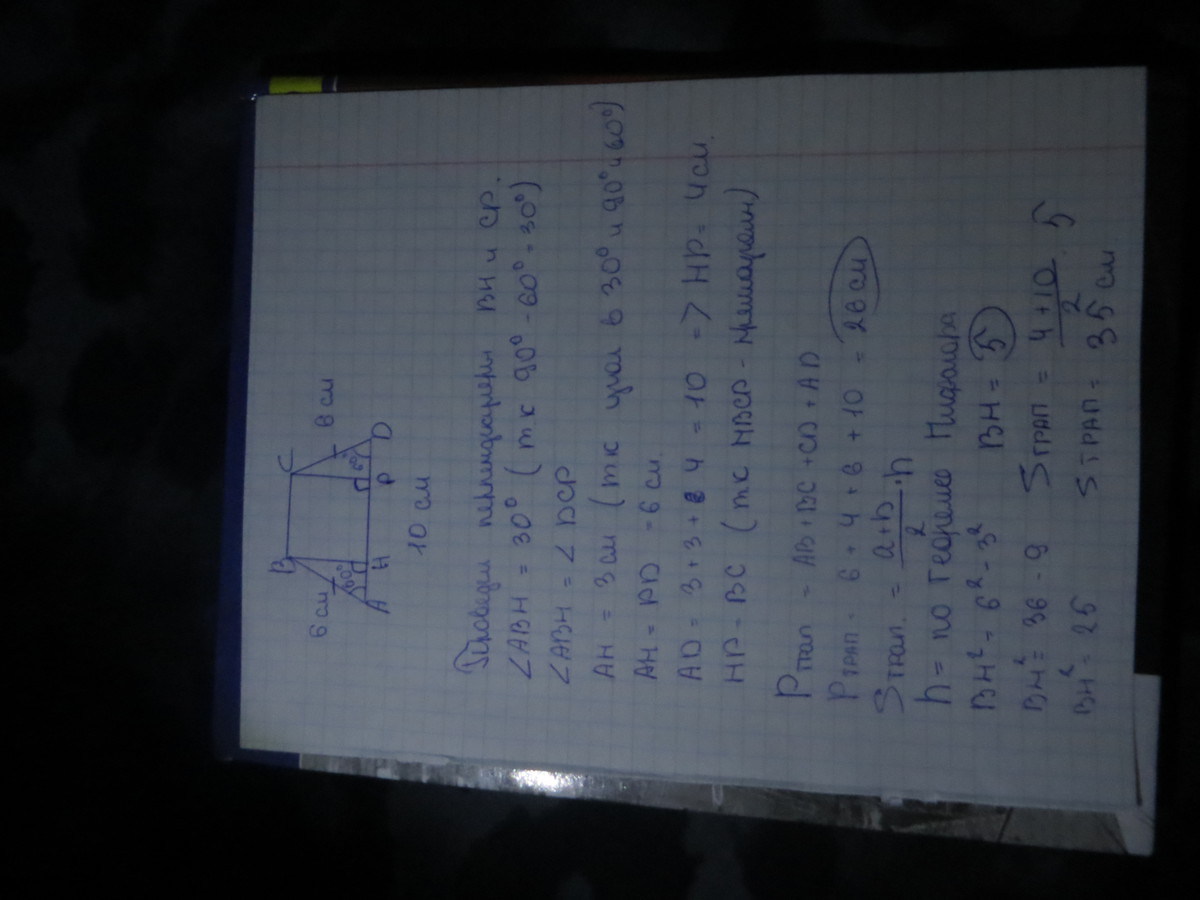 B C
6 см 8 см
60° 6°
A H P D
10 см
Проведем перпендикуляры BH и CP.
∠ABH = 30° (т.к 90° - 60° = 30°)
∠ABH = ∠DCP
AH = 3 см (т.к угол в 30° и 90° и 60°)
AH = PD = 6 см.
AD = 3 + 3 + 4 = 10 => HP = 4 см.
HP = BC (т.к HBCP -
Pтрап = AB + BC + CD + AD
Pтрап = 6 + 4 + 8 + 10 = 28 см
Sтрап. = a+b/2 · h
h = по теореме Пифагора
BH² = 6² - 3² BH = 5
BH² = 36 - 9 Sтрап = 4+10/2 · 5
BH² = 25 Sтрап = 35 см